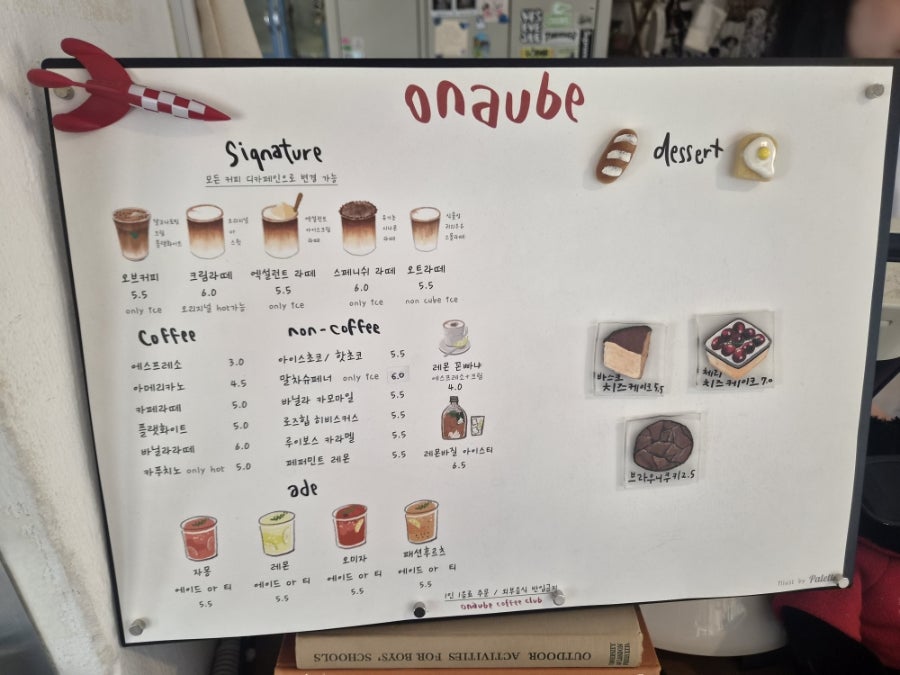 onaube
Signature
모든 커피 디카페인으로 변경 가능
오브커피
5.5
only ice
크림라떼
6.0
오리지널 hot가능
엑설런트 라떼
5.5
only ice
스페니쉬 라떼
6.0
only ice
오트라떼
5.5
non cube ice
Coffee
에스프레소 3.0
아메리카노 4.5
카페라떼 5.0
플랫화이트 5.0
바닐라라떼 6.0
카푸치노 only hot 5.0
non-coffee
아이스초코/ 핫초코 5.5
말차슈페너 only ice 6.0
바닐라 카모마일 5.5
로즈힙 히비스커스 5.5
루이보스 카라멜 5.5
페퍼민트 레몬 5.5
레몬 꼰빠냐
에스프레소+크림
4.0
레몬바질 아이스티
6.5
ade
자몽
에이드 or 티
5.5
레몬
에이드 or 티
5.5
오미자
에이드 or 티
5.5
패션후르츠
에이드 or 티
5.5
1인 1음료 주문 / 외부음식 반입금지
onaube coffee club
dessert
바스크
치즈케이크 5.5
체리
치즈케이크 7.0
브라우니쿠키 2.5
illust by Palette
OUTDOOR ACTIVITIES FOR BOYS' SCHOOLS